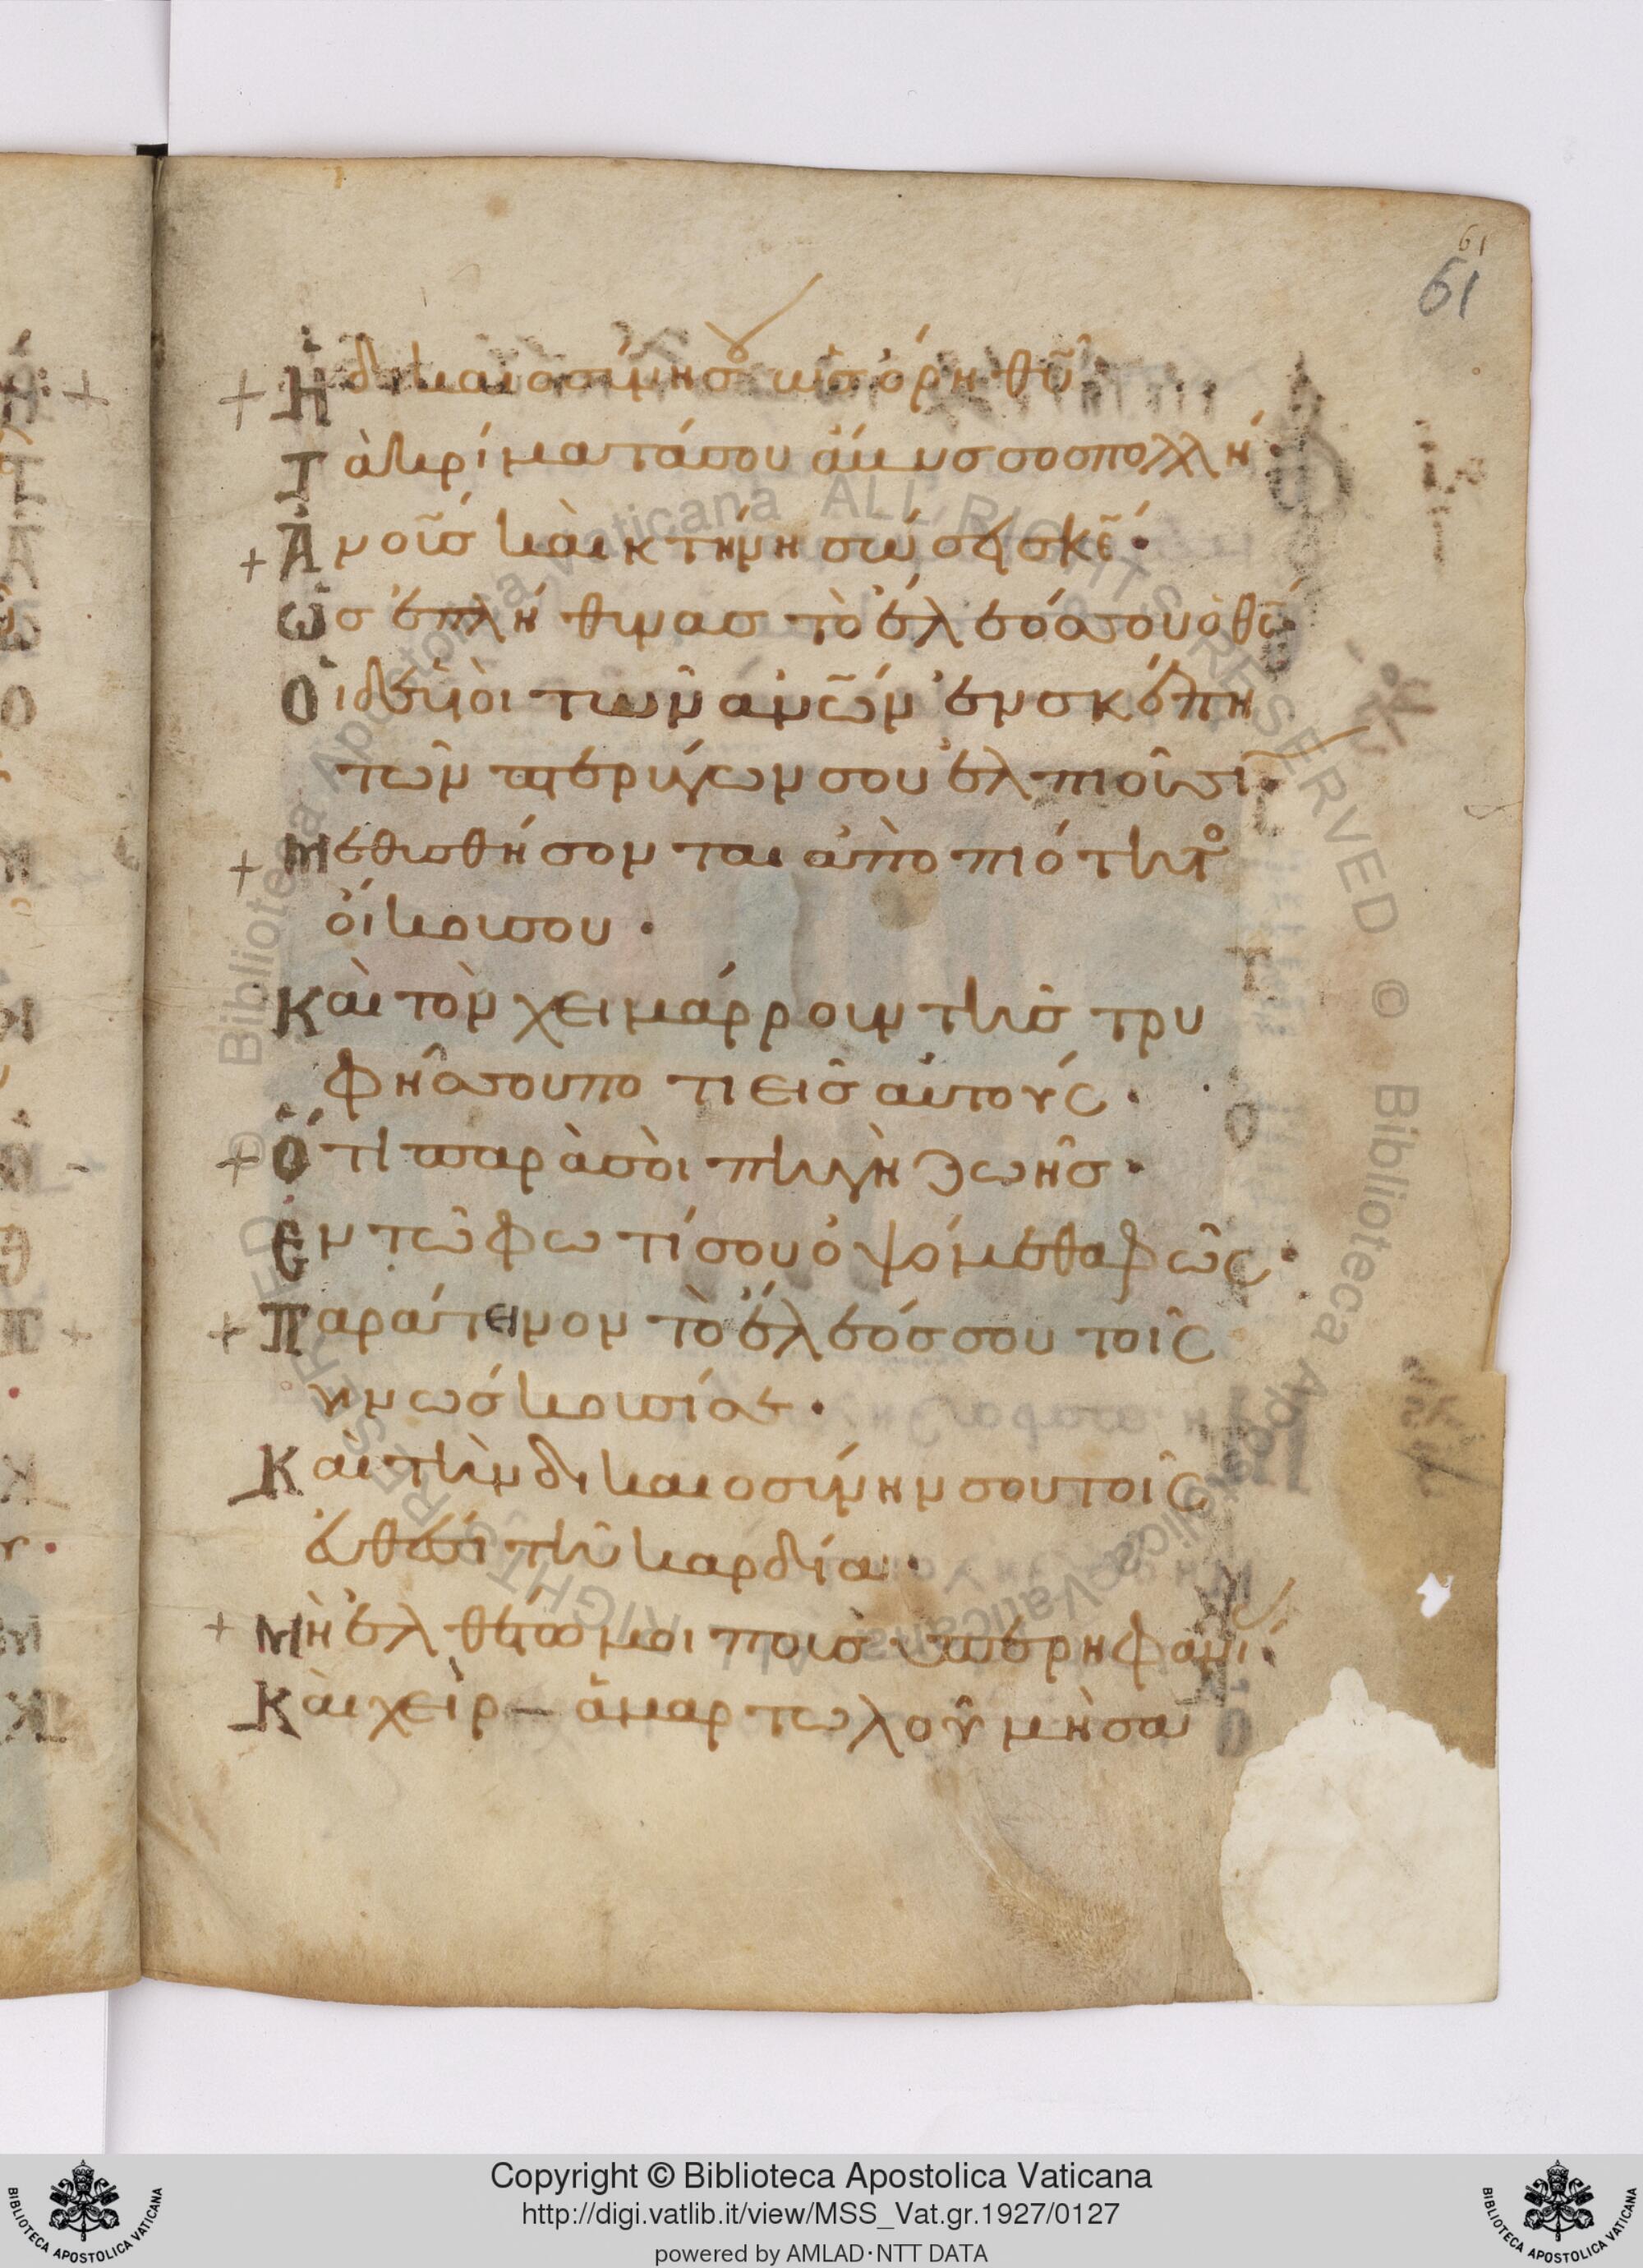 61
61
+ Ἡ δικαιοσύνησου ὡσ όρη θυ̃·
Τὰ κρίματά σου ἄβυσσοσ πολλή·
+ Ἀνουσ καὶ κτήνη σώσεισ κε̃·
Ὡσ ἐπλήθυνασ τὸ ἔλεόσ σου ὁ θσ·
Οἱ δὲ υἱοὶ τῶν ανων ἐν σκέπη
τῶν πτερύγων σου ἐλπιοῦσι·
+ Μεθυσθήσονται ἀπὸ πιότητοσ
οἴκου σου·
Καὶ τὸν χειμάρρουν τῆσ τρυ
φῆσ σου ποτιεῖσ αὐτούς·
+ Ὅτι παρὰ σοὶ πηγὴ ζωῆσ·
Ἐν τῶ φωτί σου ὀψόμεθα φῶς·
+ Παράτεινον τὸ ἔλεόσ σου τοῖς
γινώσκουσί σε·
Καὶ τὴν δικαιοσύνην σου τοῖς
ἐυθέσι τῆ καρδία·
+ Μὴ ἐλθέτω μοι ποὺσ ὑπερηφανί·
Καὶ χεὶρ ἁμαρτωλοῦ μὴ σα
© Biblioteca Apostolica Vaticana ALL RIGHTS RESERVED © Biblioteca Apostolica Vaticana ALL RIGHTS RESERVED
Copyright © Biblioteca Apostolica Vaticana
http://digi.vatlib.it/view/MSS_Vat.gr.1927/0127
powered by AMLAD·NTT DATA
BIBLIOTECA APOSTOLICA VATICANA
BIBLIOTECA APOSTOLICA VATICANA